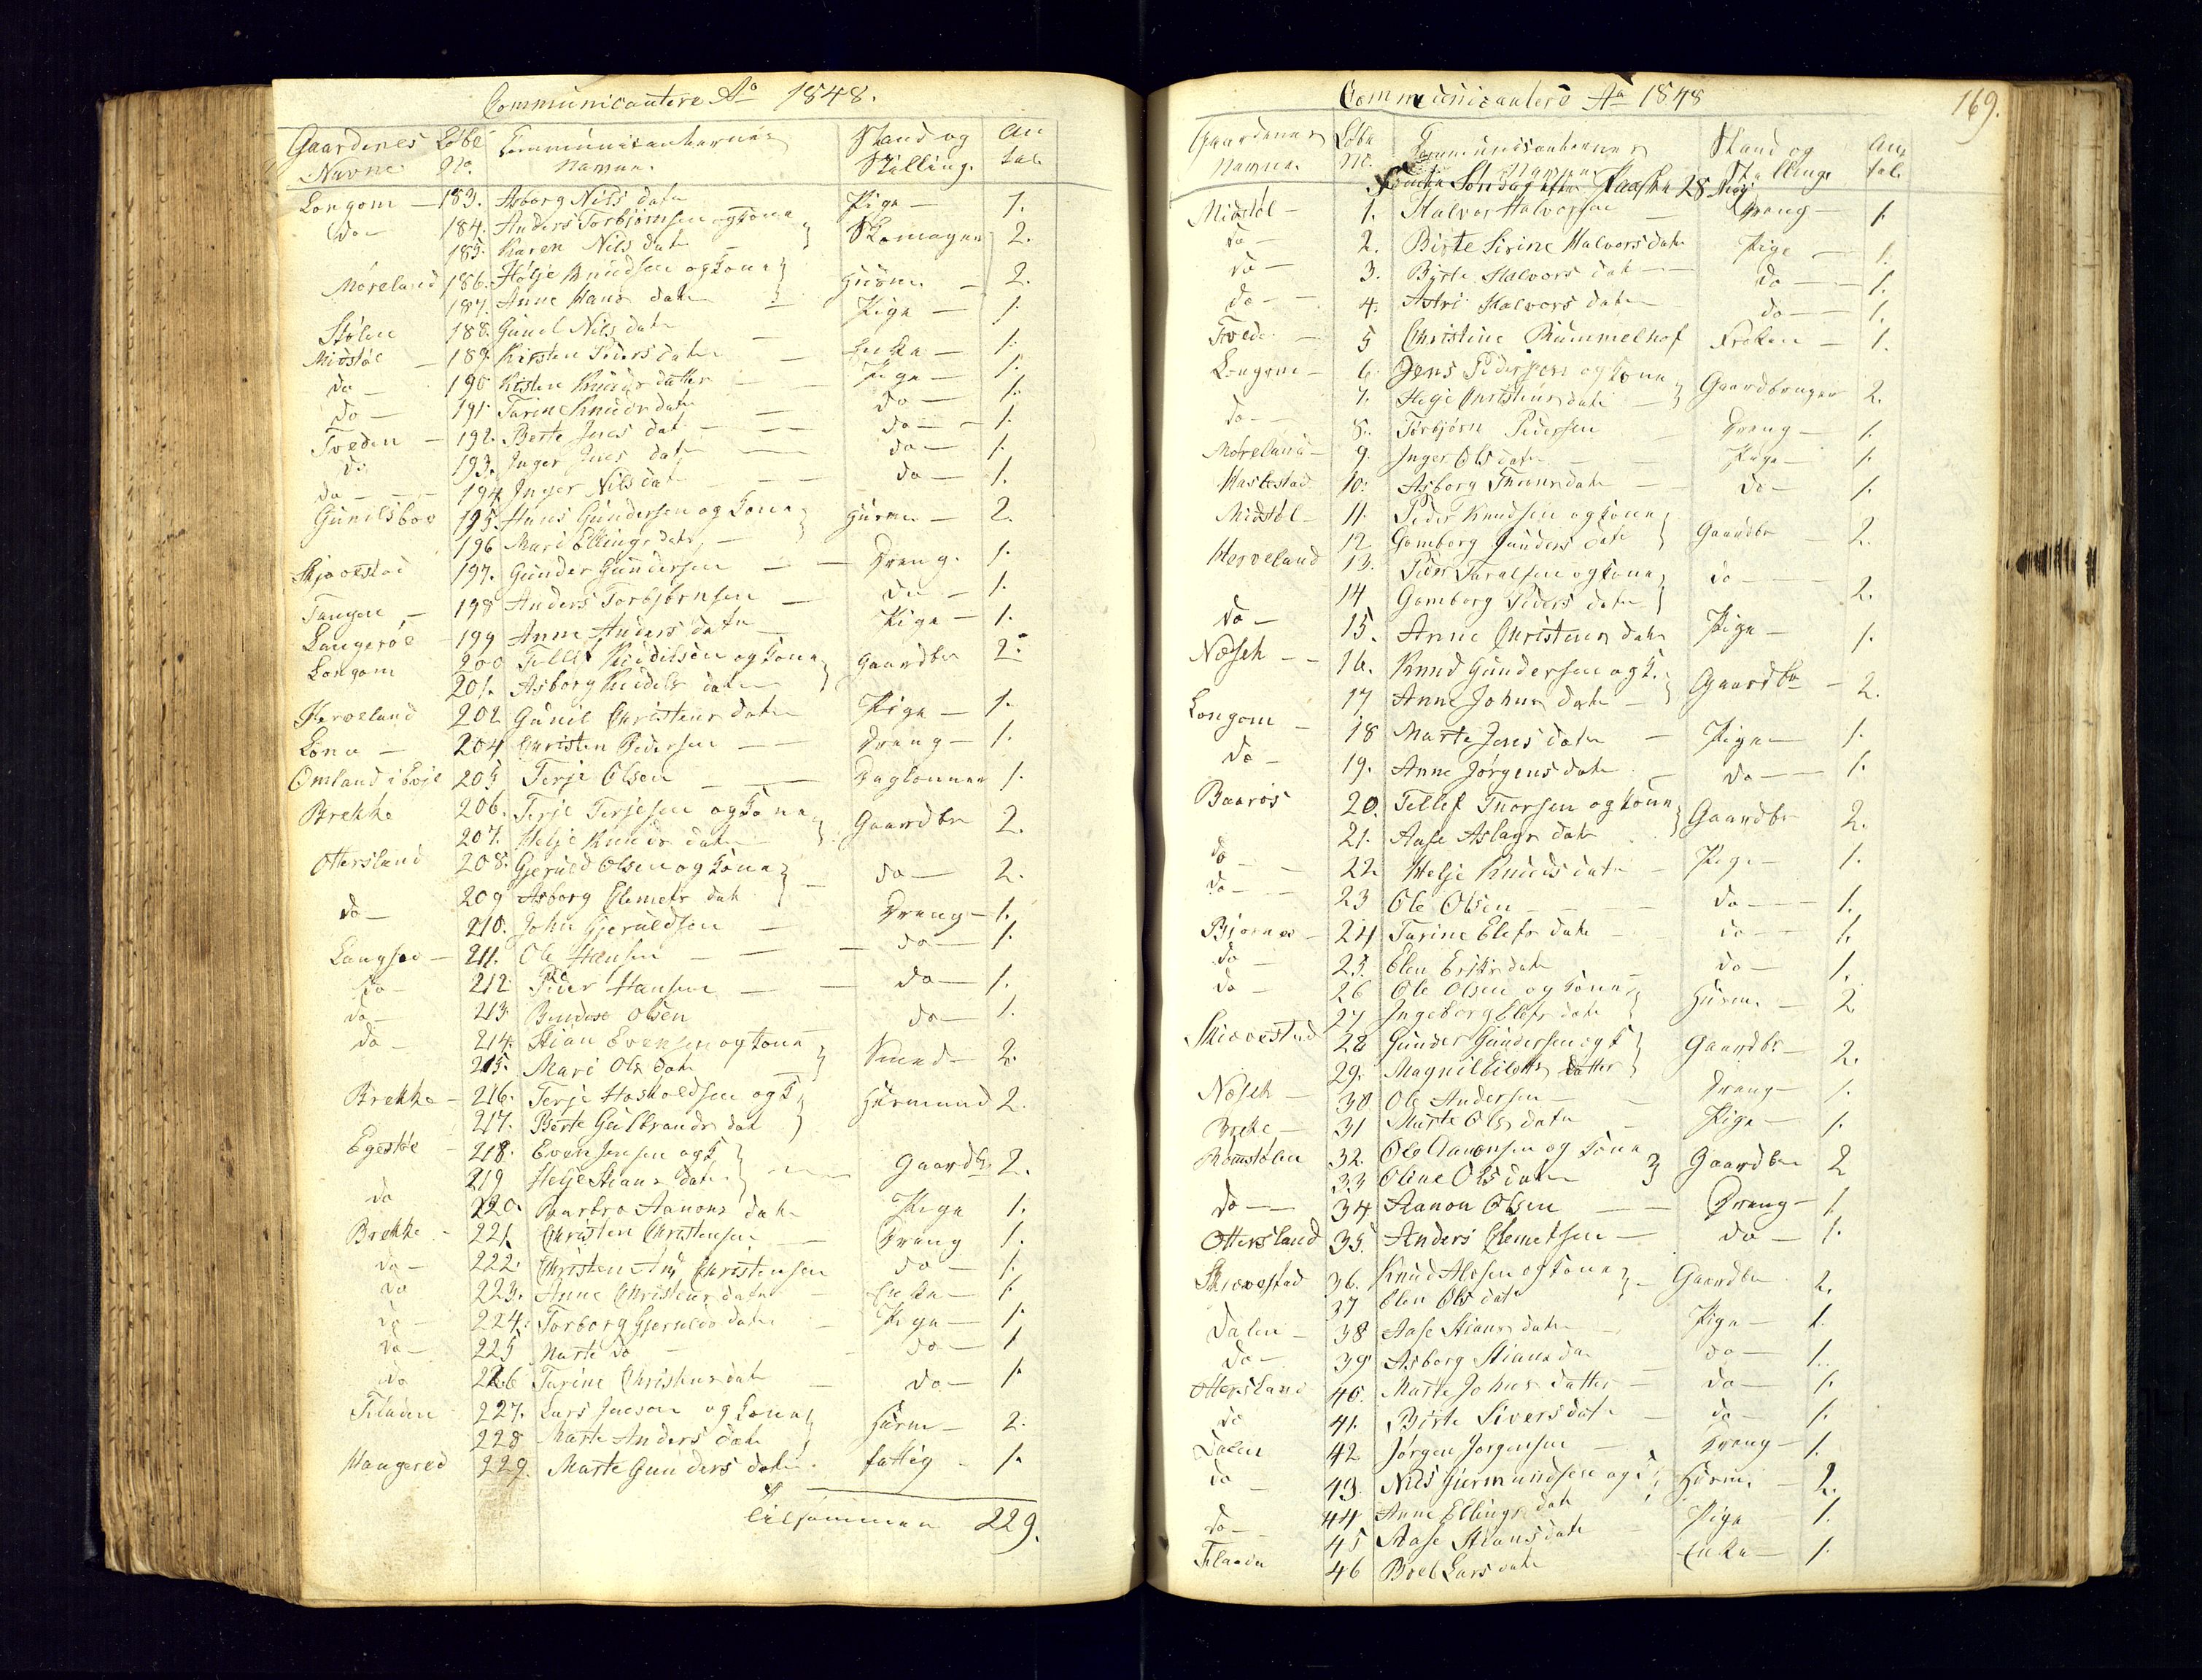 Communicantere Ao 1848.
Gaardenes Løbe Communicanternes Stand og An
Navne No. Navne. Stilling. tal.
Longom — 183. Asborg Nils datr Pige — 1.
do — 184. Anders Torbjørnsen og Kone } Skomager 2.
185. Karen Nils datr
Møreland 186. Helje Knudsen og Kone } Huusm. — 2.
187. Anne Hans datr Pige — 1.
Stølen 188. Gunil Nils datr
Midstøl — 189. Kirsten Peders datr — Enke — 1.
do — 190 Kisten Knuds datter — Pige — 1.
do — 191. Turine Knuds datr — do — 1.
Tveden — 192. Berte Jens dat — do — 1.
do 193. Inger Jens datr — do — 1.
do — 194 Inger Nils datr — do — 1.
Gunilsboe 195. Hans Gundersen og Kone } Husm — 2.
196 Mari Ellings datr
197. Gunder Gundersen — Dreng. 1.
Tangen — 198 Anders Torbjørnsen — do — 1.
Langerøe 199 Anne Anders datr — Pige — 1.
Longom 200 Tellef Knudtsen og Kone } Gaardbr 2.
201. Asborg datr
Herveland 202 Gunil Christens datr Pige — 1.
Løna — 204 Christen Pedersen — Dreng — 1.
Omland i Evje 205 Terje Olsen — Daglønner 1.
Brekke 206. Terje Terjesen og Kone } Gaardbr 2.
207. Helje Knuds datr
Ottersland 208. Gjeruld Olsen og Kone } do — 2.
209 Asborg Clemets dat
do — 210. John Gjeruldsen — Dreng — 1.
Langsæ — 211. Ole Hansen — do — 1.
do — 212 Peder Hansen — do — 1.
do — 213 Olsen do — 1.
do — 214. Stian Evensen og Kone } Smed — 2.
215. Mari Ols datr
Brekke — 216. Terje Hoskoldsen og K } Husmand 2.
217. Børte Gulbrands dat
Egestøl — 218. Even Jensen og K } Gaardb. 2.
219 Helje Stians datr
do 220. Barbro Aanons datr Pige 1.
Brekke — 221. Christen Christensen — Dreng 1.
do — 222. Christen And Christensen do — 1.
do 223. Anne Christens datr — Enke — 1.
do — 224. Torborg Gjerulds datr — Pige — 1.
do — 225 Marte do — do — 1
do 226 Turine Christens dat — do — 1.
Tilaaen 227. Lars Jacson og Kone } Husm — 2.
228 Marte Anders datr
Haugered 229. Marte Gunders datr. fattig — 1.
Tilsammen 229.
169.
Communicantere Ao 1848
Gaardenes Løbe Communicanternes Stand og An
Navne. No. Navne Stilling tal.
Femte Søndag efter Paaske 28 May
Midstøl — 1. Halvor Halvorsen — Dreng — 1.
do — 2. Birte Sirine Halvors datr Pige — 1.
do — 3. Birte Halvors datr — do — 1.
do — 4. Astri Halvors datr do — 1.
Tvede — 5 Christine Rummelhof Frøken — 1.
Longom — 6. Jens Pedersen og Kone } Gaardbruger 2.
7. Hege Christens datr
do — 8. Torbjørn Pedersen Dreng — 1.
Møreland — 9. Inger Ols datr — Pige — 1.
Haslestad 10. Asborg Thorsdatr — do — 1.
Midstøl — 11. Peder Knudsen og Kone } Gaardbr — 2.
12. Gomborg Gunders datr
Herveland 13. Peder Taralsen og Kone } do — 2.
14 Gomborg Peders datr
do — 15. Anne Christens datr Pige — 1.
Næseh — 16. Knud Gundersen og K. } Gaardbr — 2.
17 Anne Johns datr
Longom — 18 Marte Jens datr — Pige — 1.
do — 19. Anne Jørgens datr — do — 1.
Baarøs 20. Tellef Thorsen og Kone } Gaardbr 2.
21. Aase Aslags datr
do — 22 Helje Knuds datr — Pige — 1.
do — 23 Ole Olsen — do — 1.
Bjørnes — 24 Turine Elefs datr — do — 1.
do — 25. Elen Eriks datr — do — 1.
do — 26 Ole Olsen og Kone } Husm. — 2
27 Ingeborg Elefs datr
Skiævestad 28 Gunder Gundersen og K } Gaardbr — 2.
29. Magnil Eilefs datter
Næseh — 30 Ole Andersen — Dreng — 1.
Breke — 31 Marte Ols datr — Pige — 1.
Romstølen 32. Ole Aanonsen og Kone } Gaardbr 2
33 Oline Ols datr
do — 34 Aanon Olsen — Dreng — 1.
Ottersland 35. Anders Clemetsen — do — 1.
Skiævestad 36. Knud Alesen og Kone } Gaardbr 2.
37 Elen Ols datr
Dalen — 38 Aase Stians datr — Pige — 1.
do — 39 Asborg Stians da — do — 1.
Ottersland 40. Marte Johns datter — do — 1.
do 41. Birte Sivers datr — do — 1.
Dalen 42 Jørgen Jørgensen — Dreng — 1.
do — 43. Nils Giermundsen og K } Husm. — 2.
44 Anne Ellings datr
do — 45 Aase Stians datr Pige 1.
Tilaaen 46 Boel Lars datr Enke — 1.